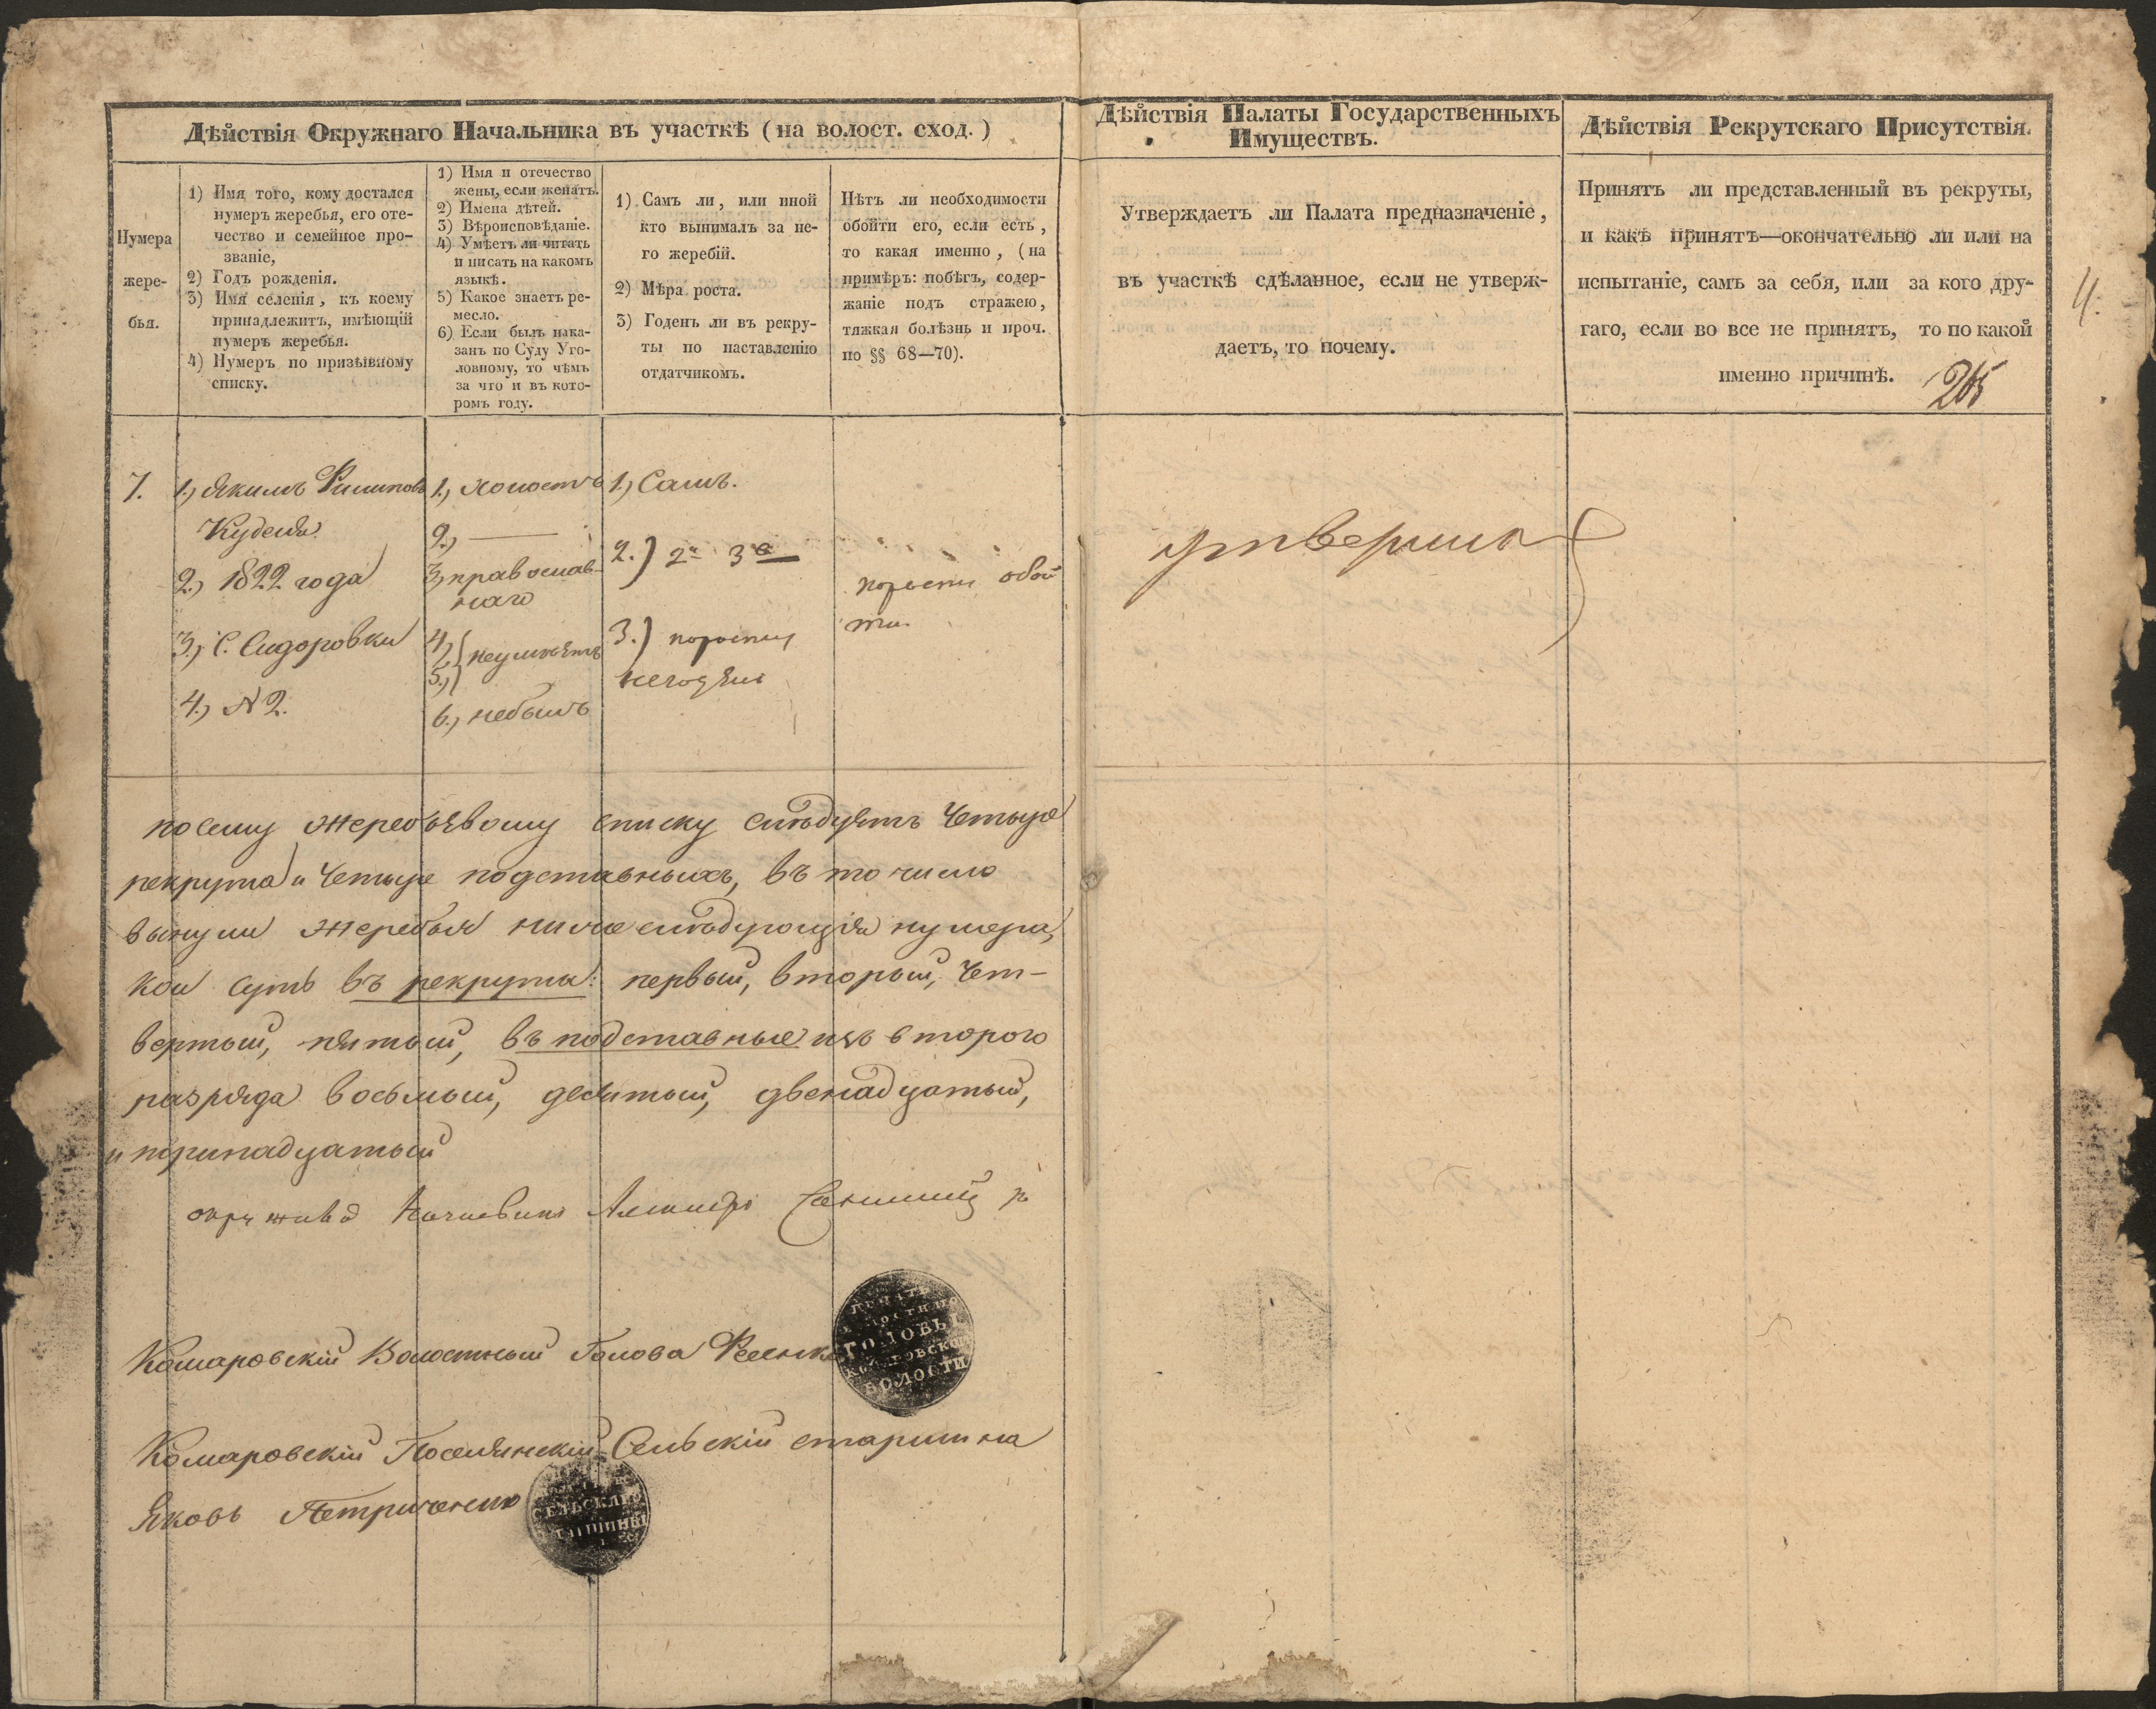 Дѣйствія Окружнаго Начальника въ участкѣ (на волост. сход.)
Нумера
жере-
бья.
1) Имя того, кому достался
нумеръ жеребья, его оте-
чество и семейное про-
званіе,
2) Годъ рожденія.
3) Имя селенія, къ коему
принадлежитъ, имѣющій
нумеръ жеребья.
4) Нумеръ по призывному
списку.
1) Имя и отечество
жены, если женатъ.
2) Имена дѣтей.
3) Вѣроисповѣданіе.
4) Умѣетъ ли читать
и писать на какомъ
языкѣ.
5) Какое знаетъ ре-
месло.
6) Если былъ нака-
занъ по Суду Уго-
ловному, то чѣмъ
за что и въ кото-
ромъ году.
1) Самъ ли, или иной
кто вынималъ за не-
го жеребій.
2) Мѣра роста.
3) Годенъ ли въ рекру-
ты по наставленію
отдатчикомъ.
Нѣтъ ли необходимости
обойти его, если есть,
то какая именно, (на
примѣръ: побѣгъ, содер-
жаніе подъ стражею,
тяжкая болѣзнь и проч.
по §§ 68—70).
Дѣйствія Палаты Государственныхъ
Имуществъ.
Утверждаетъ ли Палата предназначеніе,
въ участкѣ сдѣланное, если не утверж-
даетъ, то почему.
Дѣйствія Рекрутскаго Присутствія.
Принятъ ли представленный въ рекруты,
и какъ принятъ—окончательно ли или на
испытаніе, самъ за себя, или за кого дру-
гаго, если во все не принятъ, то по какой
именно причинѣ.
4.
265
7.
1., Якимъ Филиповъ
Кубеля
2., 1822 года
3., С. Сидоровки
4., N 2.
1., холостъ
2., —
3., православ-
наго
4., 5., неумѣетъ
6., небылъ
1., Самъ.
2.) 2 3
3.) поросту
негоденъ
поросту обой
ти.
утвердить
по сему жеребьевому списку слѣдуетъ Четыре
рекрута и Четыре подставныхъ, въ то число
вынули жеребья нижеслѣдующія нумера,
кои суть въ рекруты: первый, второй, Чет-
вертый, пятый, въ подставные изъ второго
разряда восьмый, десятый, двенадцатый,
и тринадцатый
окружной Начальникъ
Комаровскій Волостный Голова
ПЕЧАТЬ
ВОЛОСТНАГО
ГОЛОВЫ
КОМАРОВСКОЙ
ВОЛОСТИ
Комаровскій Поселянскій Сельскій старшина
Яковъ Петриченко
СЕЛЬСКАГО
СТАРШИНЫ